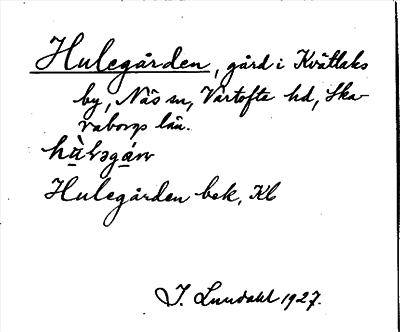 Hulegården, gård i Kvättaks
by, Näs sn, Vartofta hd, Ska-
raborgs län.
Hulegården bek, Kb
J. Lundahl 1927.